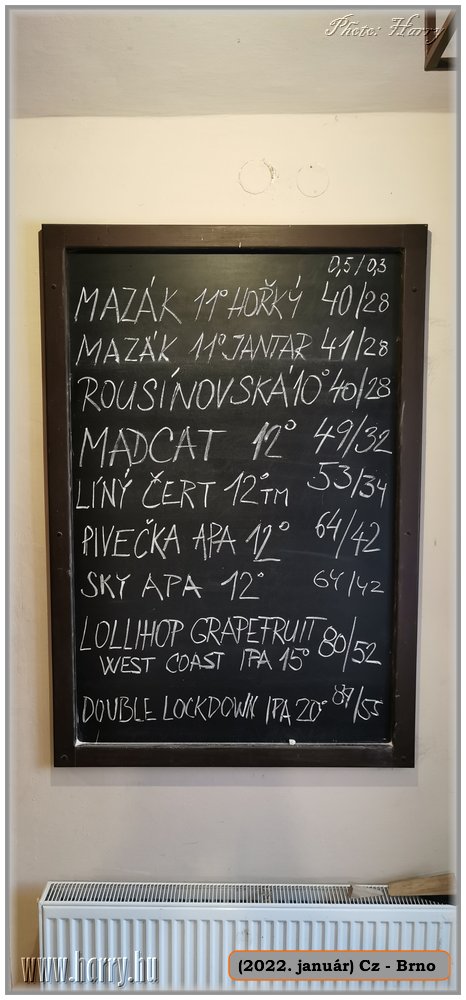 Photo: Harry
0,5/0,3
MAZÁK 11° HOŘKÝ 40/28
MAZÁK 11° JANTAR 41/28
ROUSÍNOVSKÁ 10° 40/28
MADCAT 12° 49/32
LÍNÝ ČERT 12° TM 53/34
PIVEČKA APA 12° 64/42
SKY APA 12° 64/42
LOLLIHOP GRAPEFRUIT 80/52
WEST COAST IPA 15°
DOUBLE LOCKDOWN IPA 20° /55
www.harry.hu
(2022. január) Cz - Brno